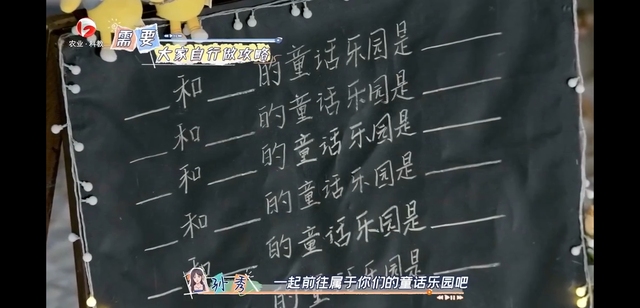 农业·科教
需要
大家自行做攻略
__和__的童话乐园是____
__和__的童话乐园是____
__和__的童话乐园是____
__和__的童话乐园是____
__和__的童话乐园是____
孙秀
一起前往属于你们的童话乐园吧